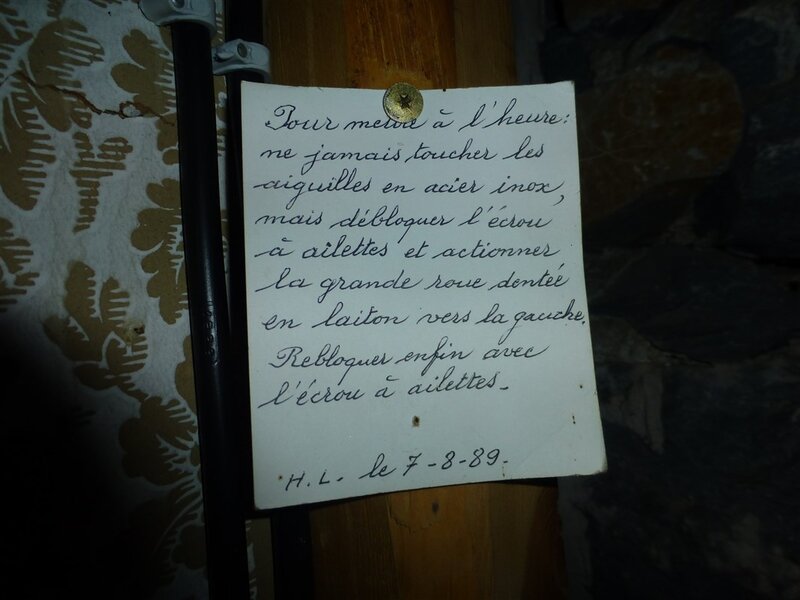 Pour mettre à l'heure:
ne jamais toucher les
aiguilles en acier inox,
mais débloquer l'écrou
à ailettes et actionner
la grande roue dentée
en laiton vers la gauche.
Rebloquer enfin avec
l'écrou à ailettes.
H. L. le 7-8-89.